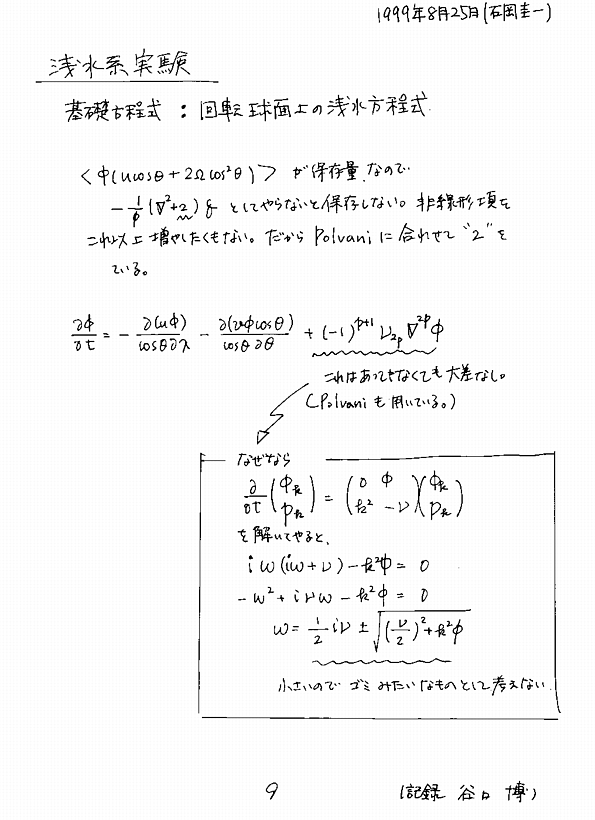 1999年8月25日(石岡圭一)
浅水系実験
基礎方程式 : 回転球面上の浅水方程式.
<Φ(ucosθ+2Ωcos²θ)> が保存量.なので
-1/Φ(∇²+2)ξ としてやらないと保存しない。非線形項を
これ以上増やしたくもない。だから Polvani に合わせて "2" を
ている。
∂Φ/∂t = - ∂(uΦ)/cosθ∂λ - ∂(vΦcosθ)/cosθ∂θ + (-1)^{p+1} ν_{2p} ∇^{2p} Φ
これはあってもなくても大差なし。
(Polvani も用いている。)
なぜなら
∂/∂t (Φ_k P_k) = (0 Φ k² -ν)(Φ_k P_k)
を解いてやると、
iω(iω+ν)-k²Φ = 0
-ω²+iνω-k²Φ = 0
ω = 1/2 iν ± √((ν/2)²+k²Φ)
小さいので ゴミみたいなものとして考えない.
9
(記録 谷口 博)